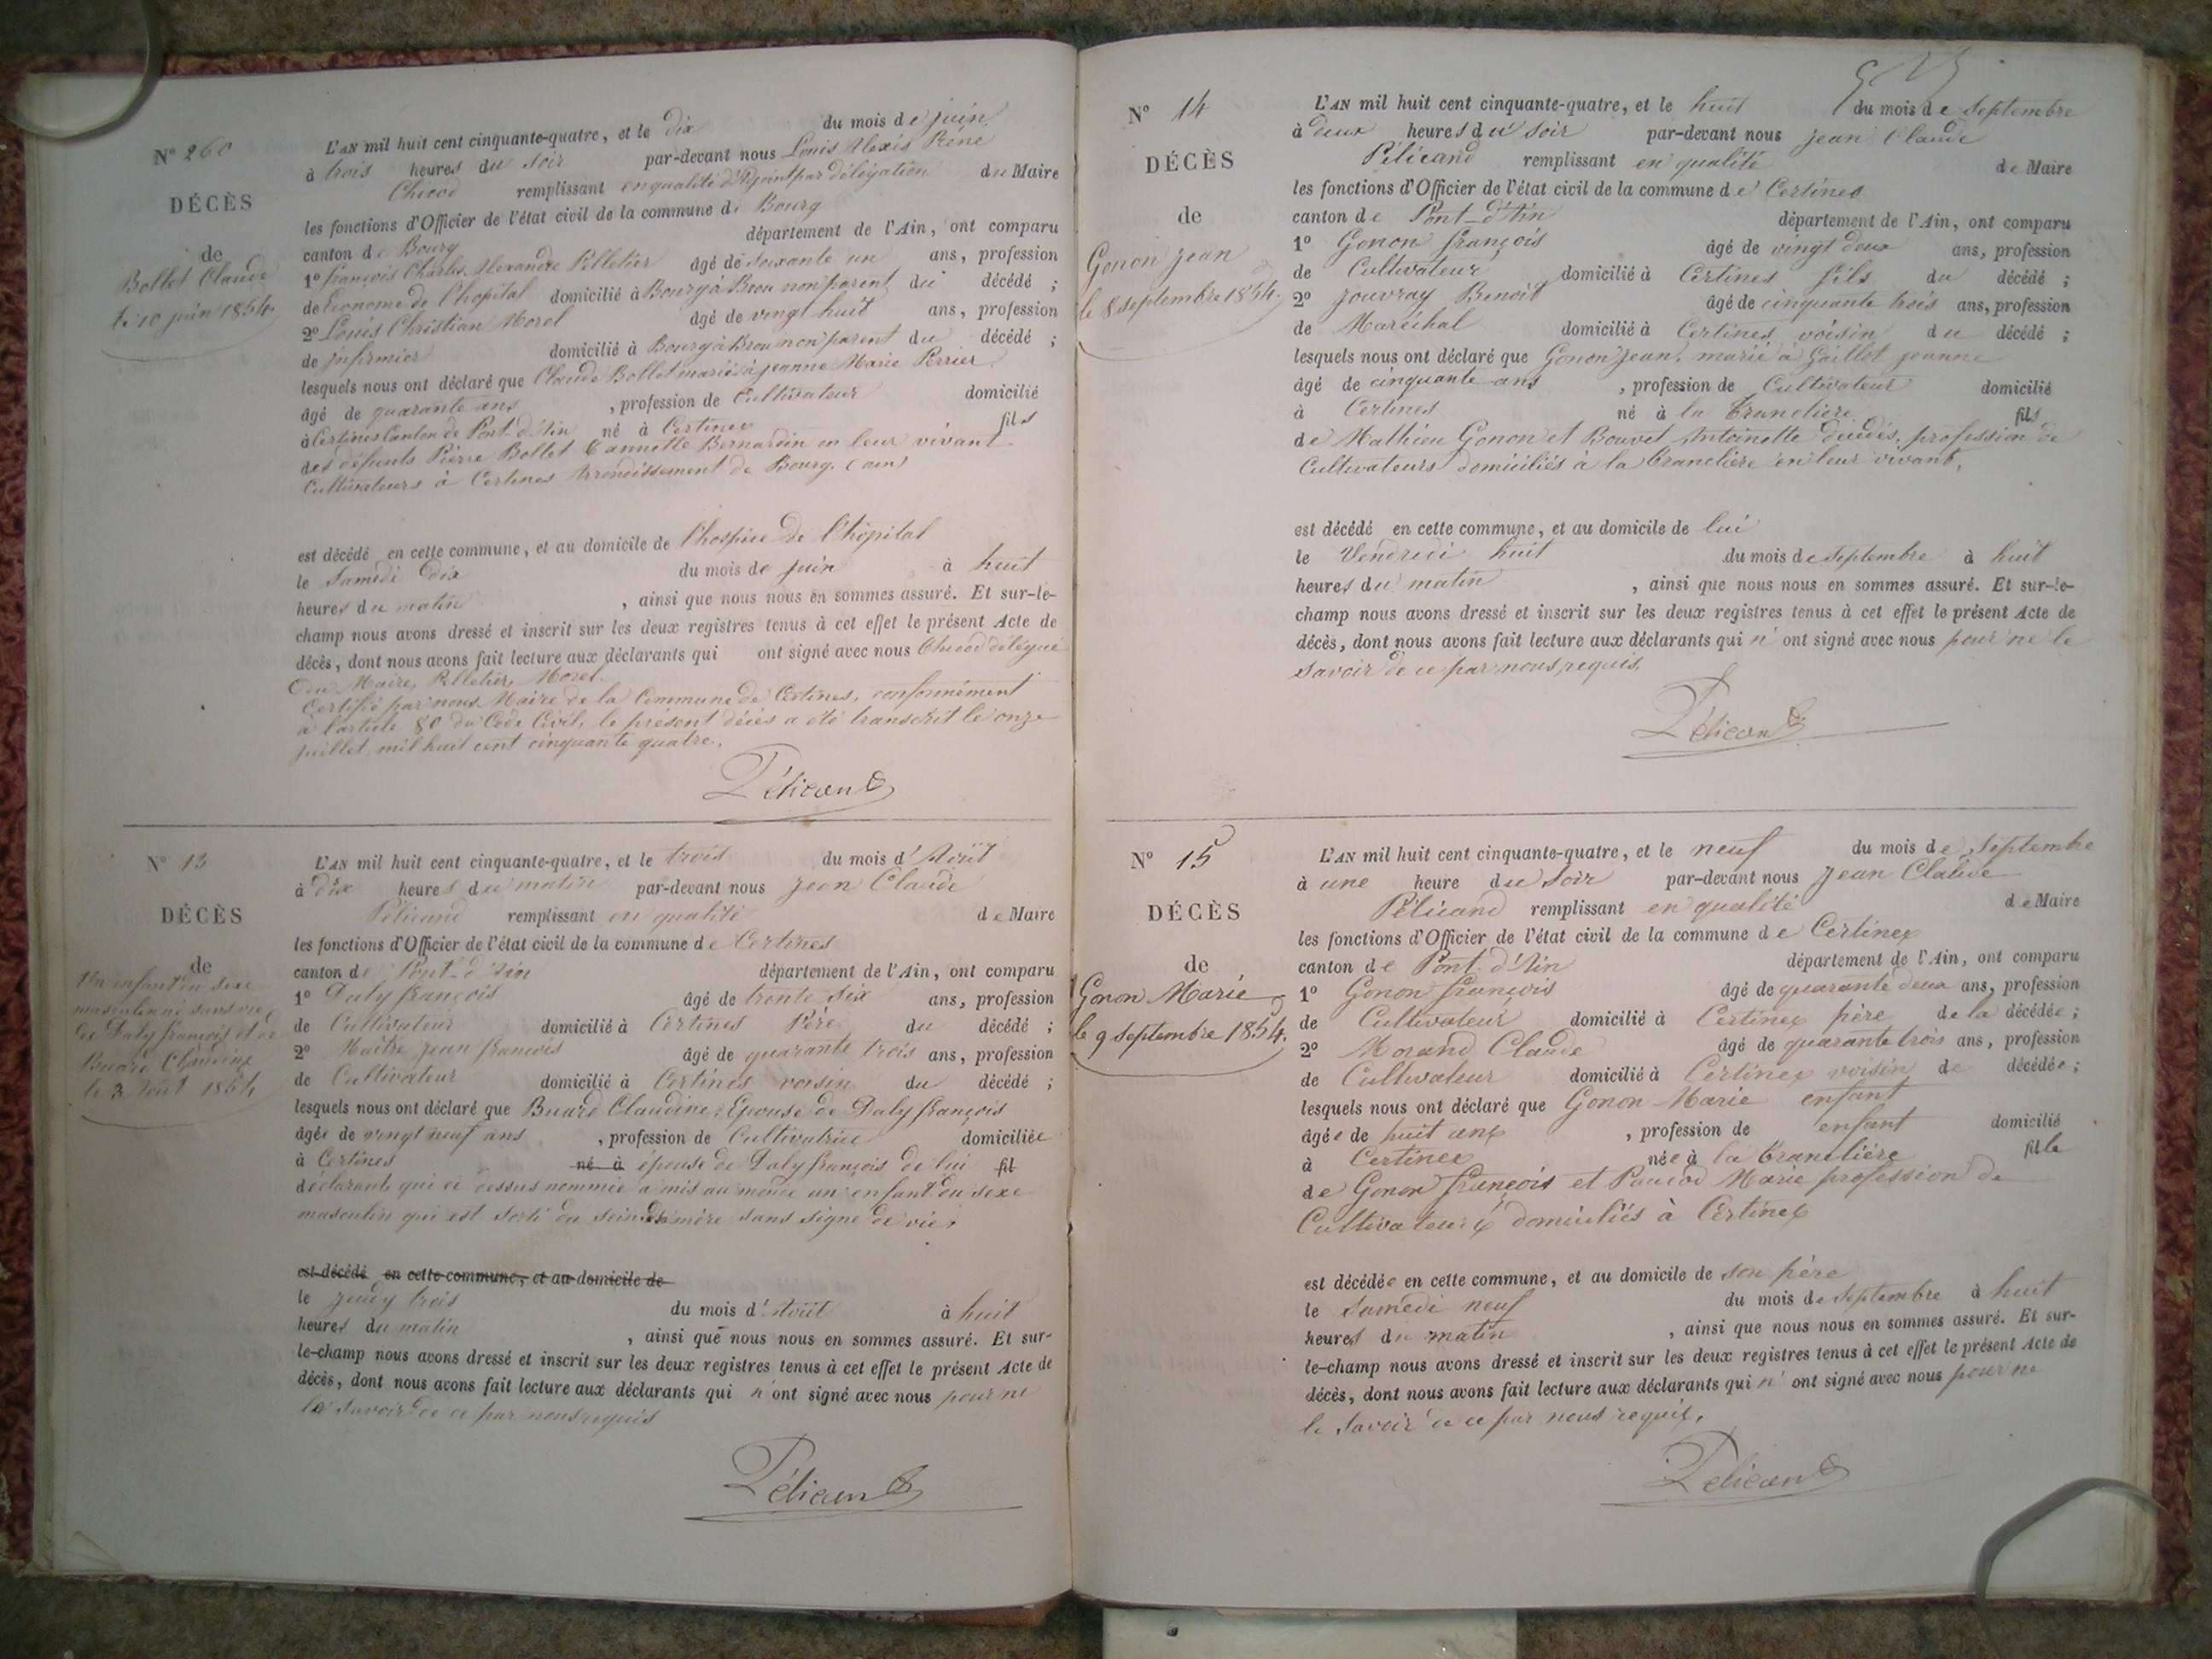 N° 260
DÉCÈS
de
Bollet Claude
le 10 juin 1854.
L'AN mil huit cent cinquante-quatre, et le dix du mois de juin
à trois heures du soir par-devant nous Louis Alexis Réné
Chicod remplissant en qualité d'Adjoint par délégation du Maire
les fonctions d'Officier de l'état civil de la commune de Bourg
canton de Bourg département de l'Ain, ont comparu
1° François Charles Alexandre Pelletier âgé de soixante un ans, profession
de Econome de l'hopital domicilié à Bourg à Brou non parent du décédé ;
2° Louis Christian Morel âgé de vingt huit ans, profession
de infirmier domicilié à Bourg à Brou non parent du décédé ;
lesquels nous ont déclaré que Claude Bollet marié à jeanne Marie Perrier
âgé de quarante ans , profession de Cultivateur domicilié
à Certines Canton de Pont d'Ain né à Certines fils
des défunts Pierre Bollet & Bernardin en leur vivant
Cultivateurs à Certines Arrondissement de Bourg. (ain)
est décédé en cette commune, et au domicile de l'hospice de l'hôpital
le Samedi dix du mois de juin à huit
heures du matin , ainsi que nous nous en sommes assuré. Et sur-le-
champ nous avons dressé et inscrit sur les deux registres tenus à cet effet le présent Acte de
décès, dont nous avons fait lecture aux déclarants qui ont signé avec nous Chicod délégué
du Maire, Pelletier, Morel.
Certifié par nous Maire de la Commune de Certines, conformément
à l'article 80 du Code Civil, le présent décès a été transcrit le onze
juillet, mil huit cent cinquante quatre.
Pélicand
N° 13
DÉCÈS
de
Un enfant du sexe
masculin né sans vie
de Daly françois et de
Buard Claudine
le 3 Août 1854
L'AN mil huit cent cinquante-quatre, et le trois du mois d'Août
à dix heures du matin par-devant nous jean Claude
Pélicand remplissant en qualité de Maire
les fonctions d'Officier de l'état civil de la commune de Certines
canton de Pont-d'Ain département de l'Ain, ont comparu
1° Daly françois âgé de trente six ans, profession
de Cultivateur domicilié à Certines Père du décédé ;
2° Maître jean françois âgé de quarante trois ans, profession
de Cultivateur domicilié à Certines voisin du décédé ;
lesquels nous ont déclaré que Buard Claudine, Epouse de Daly françois
âgée de vingt neuf ans , profession de Cultivatrice domiciliée
à Certines né à épouse de Daly françois de lui fil
déclarant, qui ci dessus nommée a mis au monde un enfant du sexe
masculin qui est sorti du sein de mère sans signe de vie,
est décédé en cette commune, et au domicile de
le jeudy trois du mois d'Août à huit
heures du matin , ainsi que nous nous en sommes assuré. Et sur-
le-champ nous avons dressé et inscrit sur les deux registres tenus à cet effet le présent Acte de
décès, dont nous avons fait lecture aux déclarants qui n'ont signé avec nous pour ne
le savoir de ce par nous requis
Pélicand
N° 14
DÉCÈS
de
Gonon jean
le 8 septembre 1854.
L'AN mil huit cent cinquante-quatre, et le huit du mois de Septembre
à deux heures du soir par-devant nous jean Claude
Pélicand remplissant en qualité de Maire
les fonctions d'Officier de l'état civil de la commune de Certines
canton de Pont-d'Ain département de l'Ain, ont comparu
1° Gonon françois âgé de vingt deux ans, profession
de Cultivateur domicilié à Certines fils du décédé ;
2° jouvray Benoit âgé de cinquante trois ans, profession
de Maréchal domicilié à Certines voisin du décédé ;
lesquels nous ont déclaré que Gonon jean, marié à Gaillet jeanne
âgé de cinquante ans , profession de Cultivateur domicilié
à Certines né à la Tranclière fils
de Mathieu Gonon et Bouvet Antoinette décédés, profession de
Cultivateurs domiciliés à la Tranclière en leur vivant,
est décédé en cette commune, et au domicile de lui
le Vendredi huit du mois de septembre à huit
heures du matin , ainsi que nous nous en sommes assuré. Et sur-le-
champ nous avons dressé et inscrit sur les deux registres tenus à cet effet le présent Acte de
décès, dont nous avons fait lecture aux déclarants qui n'ont signé avec nous pour ne le
savoir de ce par nous requis.
Pélicand
N° 15
DÉCÈS
de
Gonon Marie
le 9 septembre 1854.
L'AN mil huit cent cinquante-quatre, et le neuf du mois de Septembre
à une heure du soir par-devant nous jean Claude
Pélicand remplissant en qualité de Maire
les fonctions d'Officier de l'état civil de la commune de Certines
canton de Pont d'Ain département de l'Ain, ont comparu
1° Gonon françois âgé de quarante deux ans, profession
de Cultivateur domicilié à Certines père de la décédée ;
2° Morand Claude âgé de quarante trois ans, profession
de Cultivateur domicilié à Certines voisin de décédée ;
lesquels nous ont déclaré que Gonon Marie enfant
âgée de huit ans , profession de enfant domicilié
à Certines née à la Tranclière fille
de Gonon françois et Marie profession de
Cultivateurs domiciliés à Certines
est décédée en cette commune, et au domicile de son père
le Samedi neuf du mois de septembre à huit
heures du matin , ainsi que nous nous en sommes assuré. Et sur-
le-champ nous avons dressé et inscrit sur les deux registres tenus à cet effet le présent Acte de
décès, dont nous avons fait lecture aux déclarants qui n'ont signé avec nous pour ne
le savoir de ce par nous requis,
Pélicand